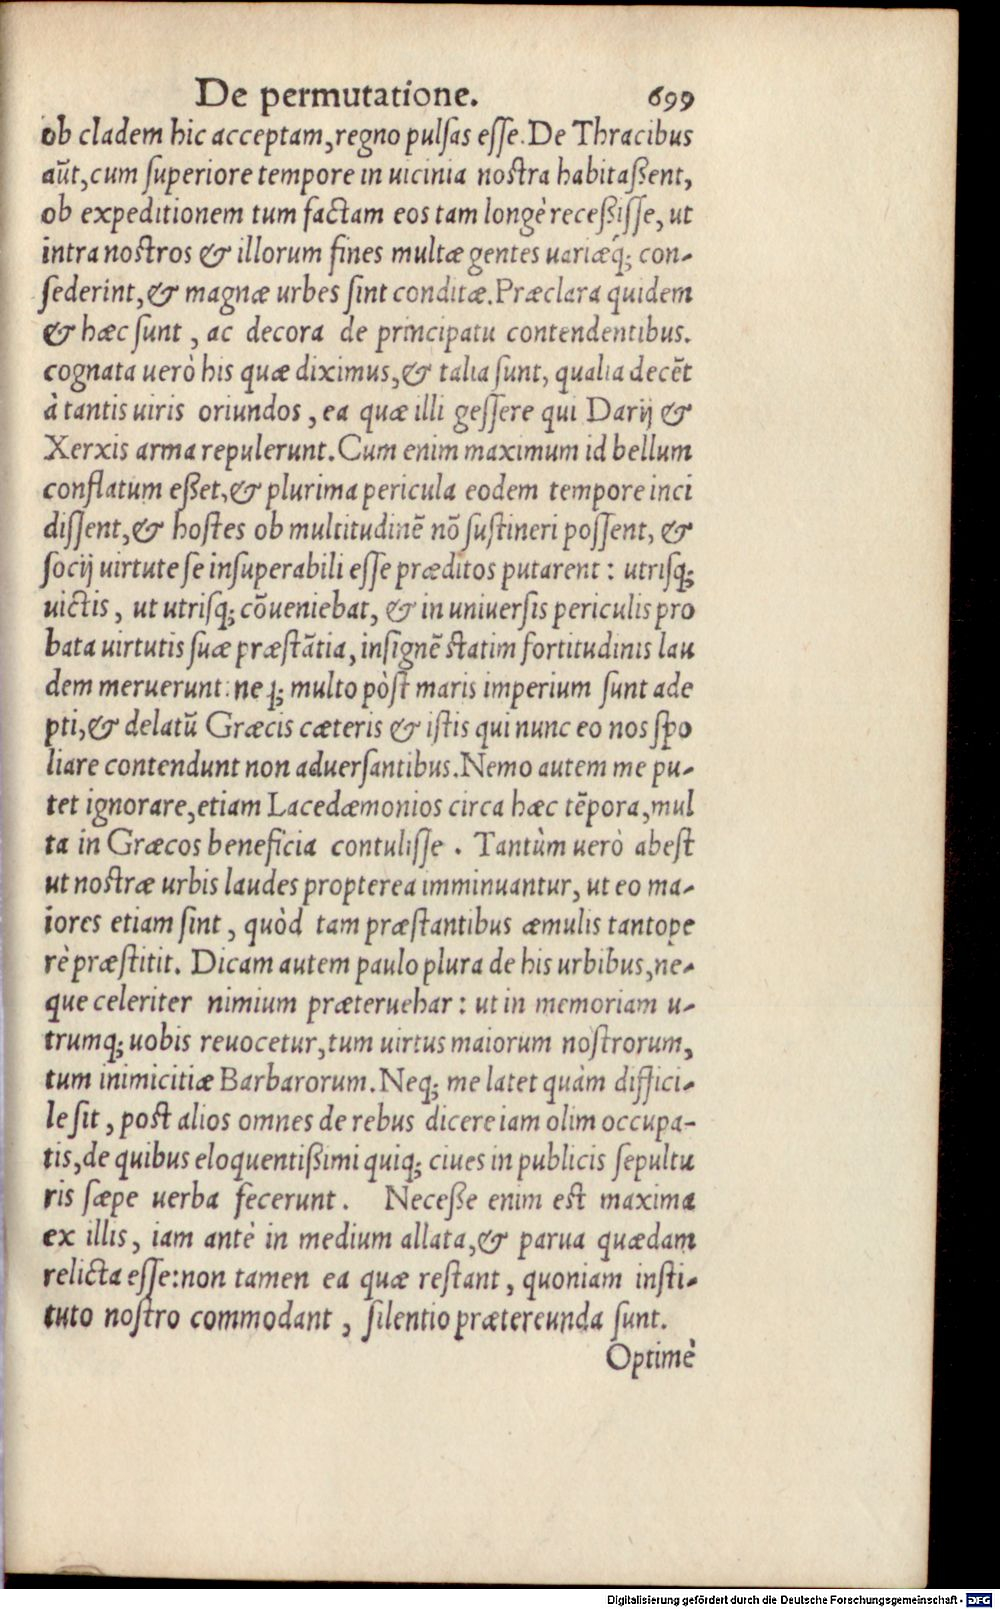 De permutatione. 699
ob cladem hic acceptam, regno pulsas esse. De Thracibus
aūt, cum superiore tempore in uicinia nostra habitaßent,
ob expeditionem tum factam eos tam longè receßisse, ut
intra nostros & illorum fines multæ gentes uariæq́; con-
sederint, & magnæ urbes sint conditæ. Præclara quidem
& hæc sunt, ac decora de principatu contendentibus.
cognata uerò his quæ diximus, & talia sunt, qualia decēt
à tantis uiris oriundos, ea quæ illi gessere qui Darij &
Xerxis arma repulerunt. Cum enim maximum id bellum
conflatum eßet, & plurima pericula eodem tempore inci
dissent, & hostes ob multitudinē nō sustineri possent, &
socij uirtute se insuperabili esse præditos putarent: utrisq;
uictis, ut utrisq; cōueniebat, & in uniuersis periculis pro
bata uirtutis suæ præstātia, insignē statim fortitudinis lau
dem meruerunt: neq; multo pòst maris imperium sunt ade
pti, & delatū Græcis cæteris & istis qui nunc eo nos spo
liare contendunt non aduersantibus. Nemo autem me pu-
tet ignorare, etiam Lacedæmonios circa hæc tēpora, mul
ta in Græcos beneficia contulisse. Tantùm uerò abest
ut nostræ urbis laudes propterea imminuantur, ut eo ma-
iores etiam sint, quòd tam præstantibus æmulis tantope
rè præstitit. Dicam autem paulo plura de his urbibus, ne-
que celeriter nimium præteruehar: ut in memoriam u-
trumq; uobis reuocetur, tum uirtus maiorum nostrorum,
tum inimicitiæ Barbarorum. Neq; me latet quàm diffici-
le sit, post alios omnes de rebus dicere iam olim occupa-
tis, de quibus eloquentißimi quiq; ciues in publicis sepultu
ris sæpe uerba fecerunt. Neceße enim est maxima
ex illis, iam antè in medium allata, & parua quædam
relicta esse: non tamen ea quæ restant, quoniam insti-
tuto nostro commodant, silentio prætereunda sunt.
Optimè
Digitalisierung gefördert durch die Deutsche Forschungsgemeinschaft - DFG